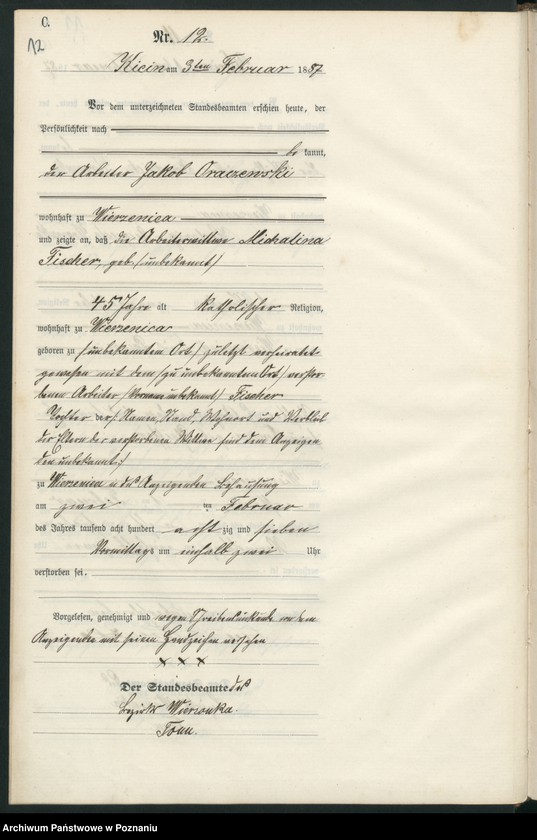 C.
12
Nr. 12.
Kicin am 3ten Februar 1887
Vor dem unterzeichneten Standesbeamten erschien heute, der
Persönlichkeit nach
be kannt,
der Arbeiter Jakob Oraczewski
wohnhaft zu Wierzenica
und zeigte an, daß die Arbeiterwittwe Michalina
Fischer, geb. /unbekannt/
45 Jahre alt katholischer Religion,
wohnhaft zu Wierzenica
geboren zu /unbekanntem Ort/ zuletzt verheiratet
gewesen mit dem /zu unbekanntem Ort/ verstor-
benen Arbeiter /Vorname unbekannt/ Fischer
Tochter der /: Namen, Stand, Wohnort und Verbleib
der Eltern der verstorbenen Wittwe sind dem Anzeigen-
den unbekannt :/
zu Wierzenica in des Anzeigenden Behausung
am zwei ten Februar
des Jahres tausend acht hundert acht zig und sieben
Vormittags um einhalb zwei Uhr
verstorben sei.
Vorgelesen, genehmigt und wegen Schreibensunkunde von dem
Anzeigenden mit seinem Handzeichen versehen
x x x
Der Standesbeamte des
Bezirks Wierzonka.
Tonn.
Archiwum Państwowe w Poznaniu